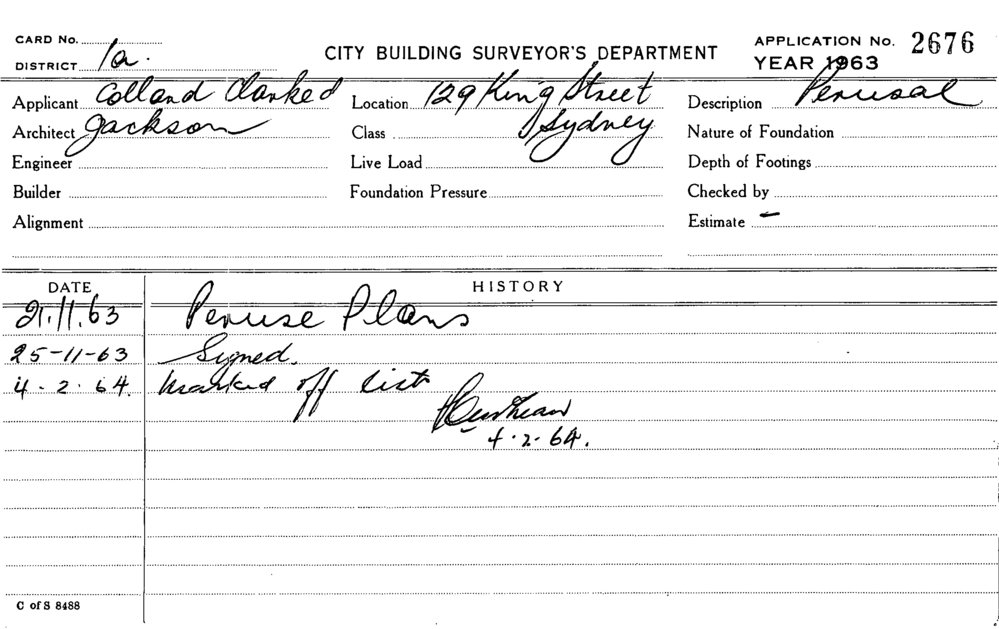 CARD No. APPLICATION No. 2676
CITY BUILDING SURVEYOR'S DEPARTMENT
DISTRICT 1a. YEAR 1963
Applicant Colland Clarke & Location 129 King Street Description Perusal
Architect Jackson Class Sydney Nature of Foundation
Engineer Live Load Depth of Footings
Builder Foundation Pressure Checked by
Alignment Estimate –
DATE HISTORY
21.11.63 Peruse Plans
25-11-63 Signed.
4.2.64. Marked off list
4.2.64.
C of S 8488